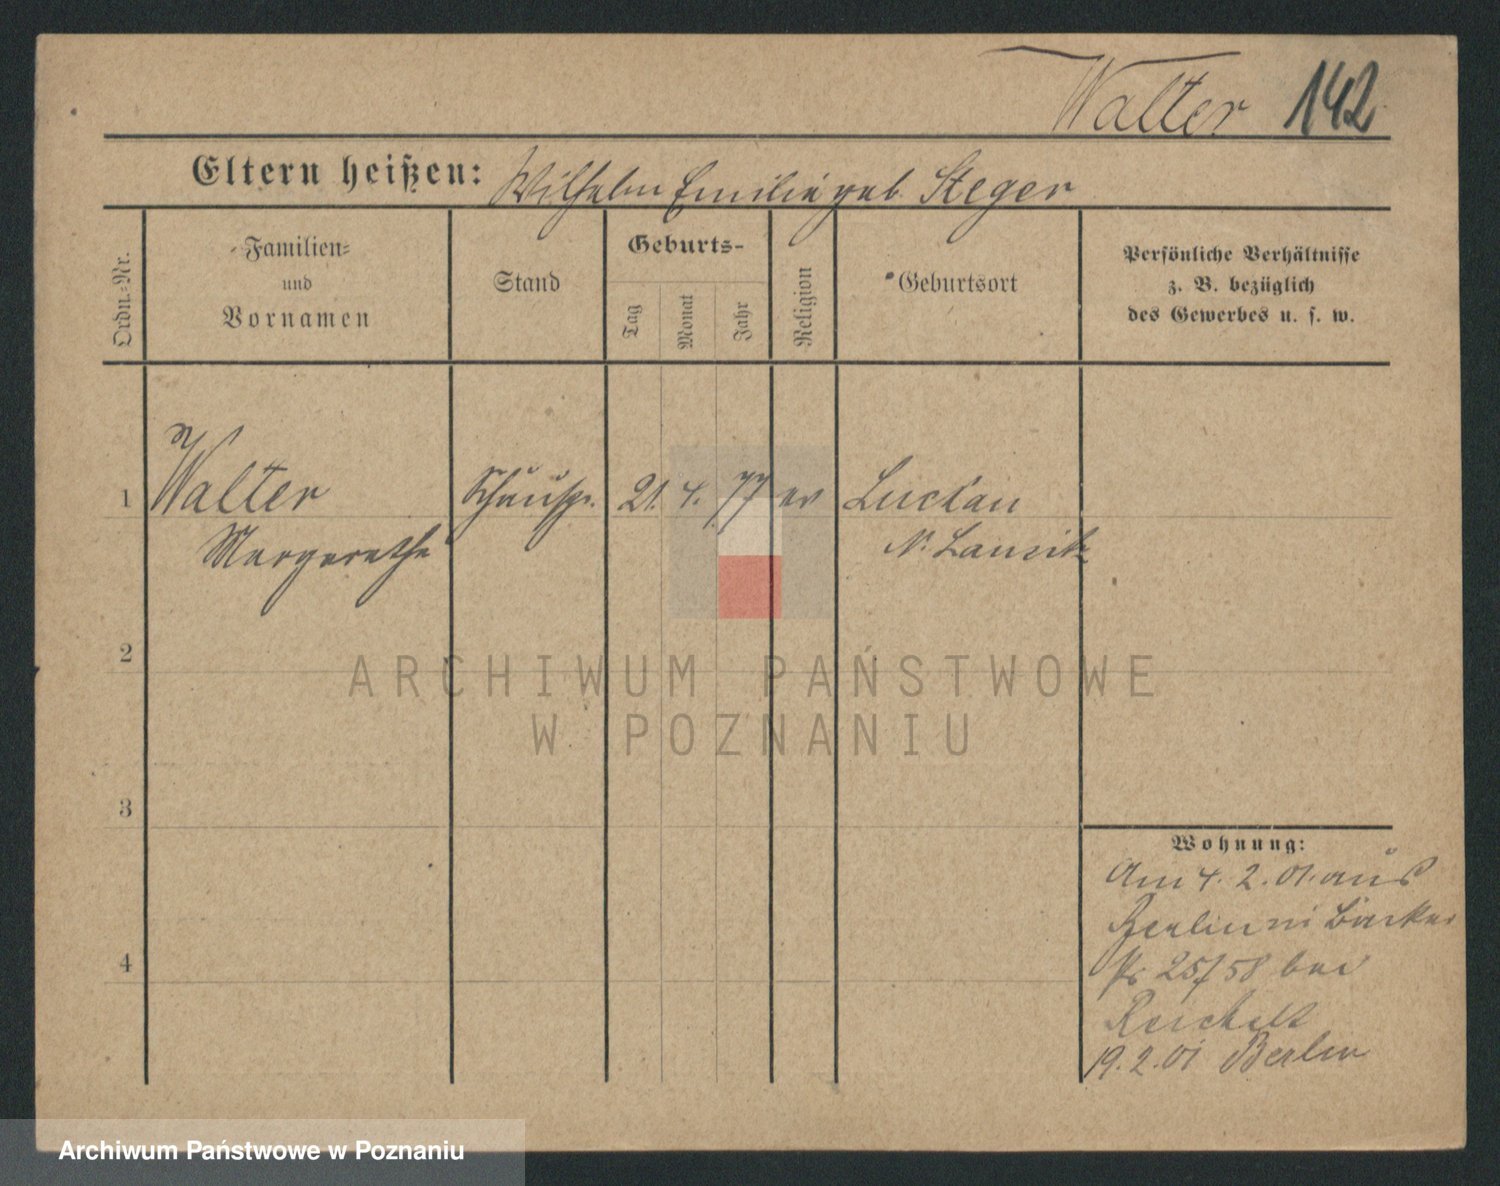 Walter 142
Eltern heißen: Wilhelm Emilie geb. Steger
Ordn.-Nr.
Familien-
und
Vornamen
Stand
Geburts-
Tag
Monat
Jahr
Religion
Geburtsort
Persönliche Verhältnisse
z. B. bezüglich
des Gewerbes u. s. w.
1 Walter Schausp. 21. 4. 77 ev Luckau
Margarethe N. Lausitz
2
3
4
Wohnung:
Am 4. 2. 01. aus
Berlin in Bäcker
25/58 bei
Reichelt
19. 2. 01 Berlin
ARCHIWUM PAŃSTWOWE
W POZNANIU
Archiwum Państwowe w Poznaniu